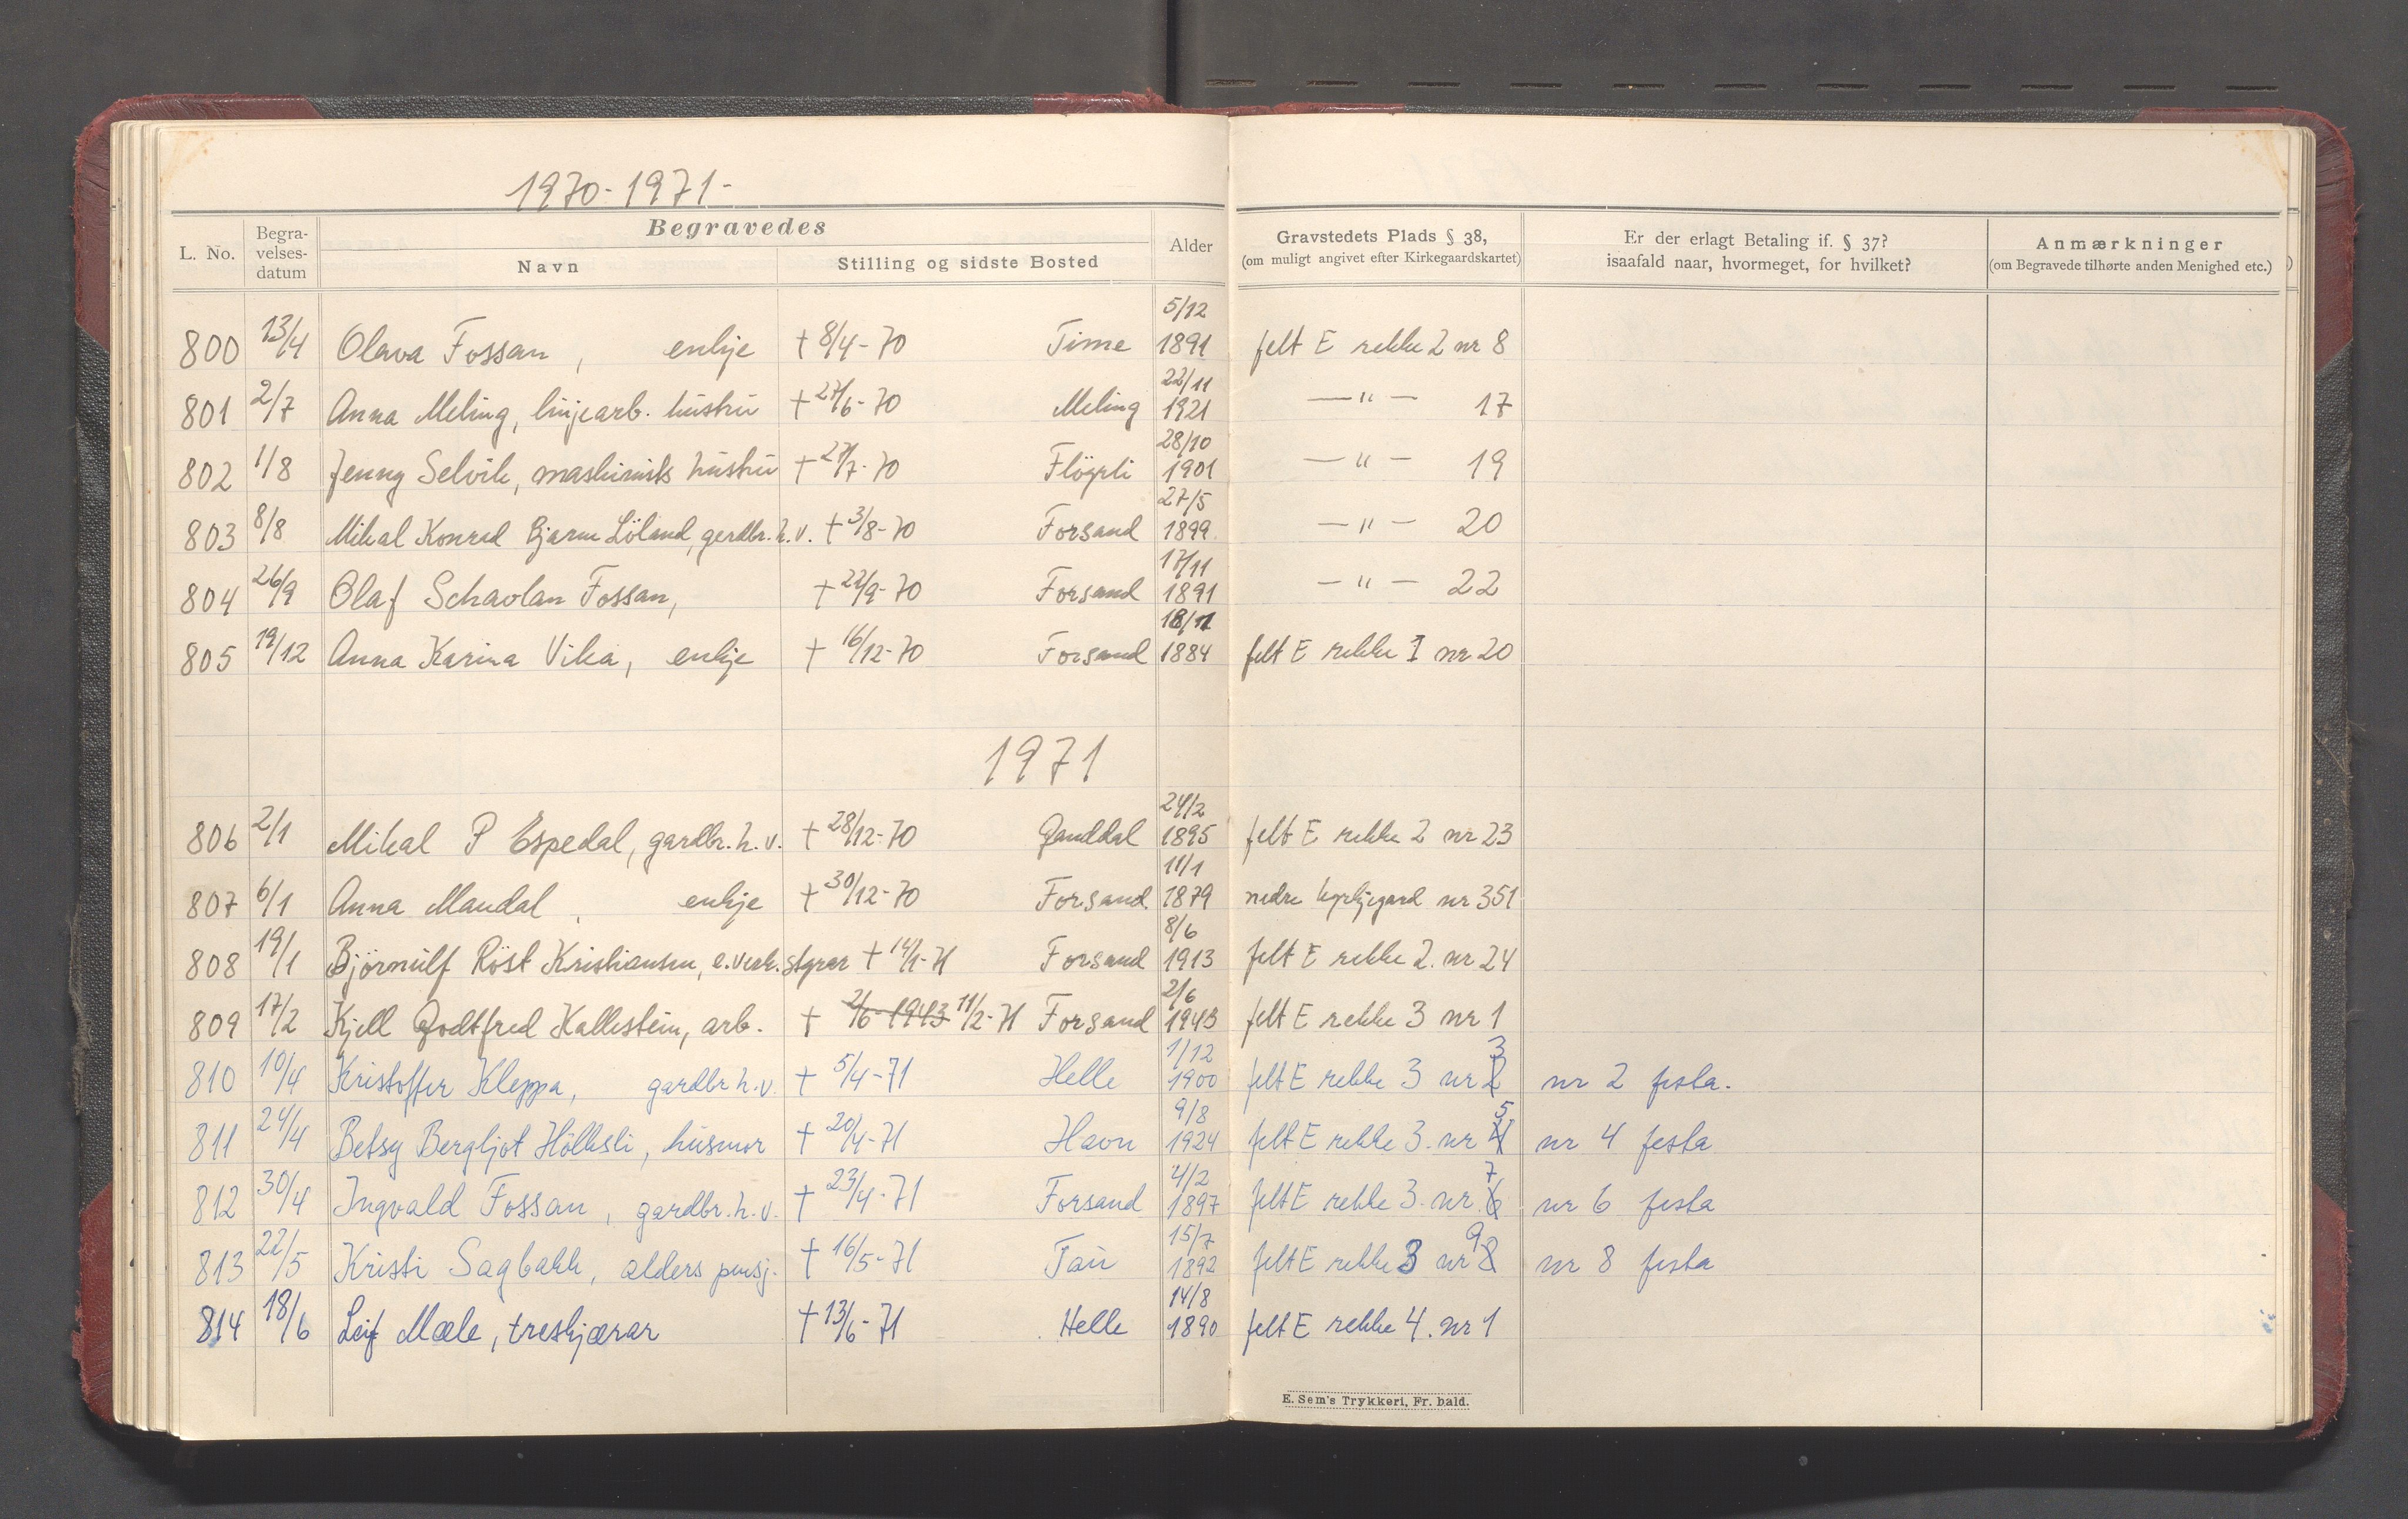 1970-1971-
L. No.
Begra-
velses-
datum
Begravedes
Navn
Stilling og sidste Bosted
Alder
Gravstedets Plads § 38,
(om muligt angivet efter Kirkegaardskartet)
Er der erlagt Betaling if. § 37?
isaafald naar, hvormeget, for hvilket?
Anmærkninger
(om Begravede tilhørte anden Menighed etc.)
800 13/4 Olava Fossan, enkje + 8/4-70 Time 5/12 1891 felt E rekke 2 nr 8
801 2/7 Anna Meling, linjearb. hustru + 27/6-70 Meling 22/11 1921 —"— 17
802 1/8 Jenny Selvik, maskinists hustru + 27/7-70 Fløysli 28/10 1901 —"— 19
803 8/8 Mikal Konrad Bjarne Löland, gardbr. h.v. + 3/8-70 Forsand 27/5 1899 —"— 20
804 26/9 Olaf Schavlan Fossan, + 22/9-70 Forsand 17/11 1891 —"— 22
805 19/12 Anna Karina Vika, enkje + 16/12-70 Forsand 18/11 1884 felt E rekke I nr 20
1971
806 2/1 Mikal P Espedal, gardbr. h.v. + 28/12-70 Ganddal 24/2 1895 felt E rekke 2 nr 23
807 6/1 Anna Maudal, enkje + 30/12-70 Forsand 11/1 1879 nedre kyrkjegard nr 351
808 19/1 Björnulf Röst Kristiansen, e.verk. styrar + 14/1-71 Forsand 8/6 1913 felt E rekke 2. nr 24
809 17/2 Kjell Godtfred Hallestein, arb. + 2/6-1943 11/2-71 Forsand 2/6 1943 felt E rekke 3 nr 1
810 10/4 Kristoffer Kleppa, gardbr h.v. + 5/4-71 Helle 1/12 1900 felt E rekke 3 nr 2 3 nr 2 festa.
811 24/4 Betsy Bergljot Höllesli, husmor + 20/4-71 Havn 9/8 1924 felt E rekke 3. nr 4 5 nr 4 festa
812 30/4 Ingvald Fossan, gardbr. h.v. + 23/4-71 Forsand 4/2 1897 felt E rekke 3. nr. 6 7 nr 6 festa
813 22/5 Kristi Sagbakk, alders pensj. + 16/5-71 Tau 15/7 1892 felt E rekke 3 nr 8 9 nr 8 festa
814 18/6 Leif Mæle, treskjærar + 13/6-71 Helle 14/8 1890 felt E rekke 4. nr 1
E. Sem's Trykkeri, Fr. hald.